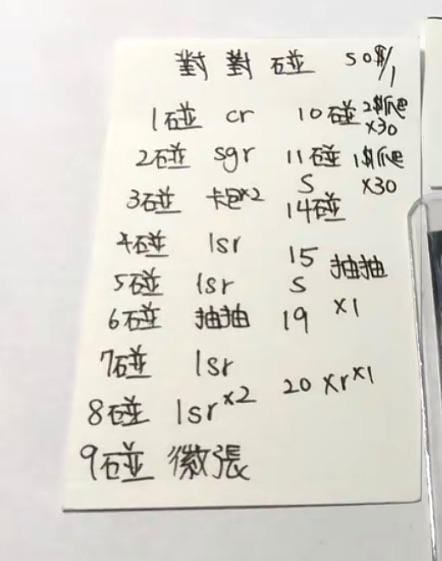 對對碰 50$/1
1碰 cr
2碰 sgr
3碰 卡包x2
4碰 lsr
5碰 lsr
6碰 抽抽
7碰 lsr
8碰 lsr x2
9碰 徽張
10碰 2$爬 x30
11碰 1$爬 x30
S
14碰
15 抽抽
S x1
19
20 xr x1